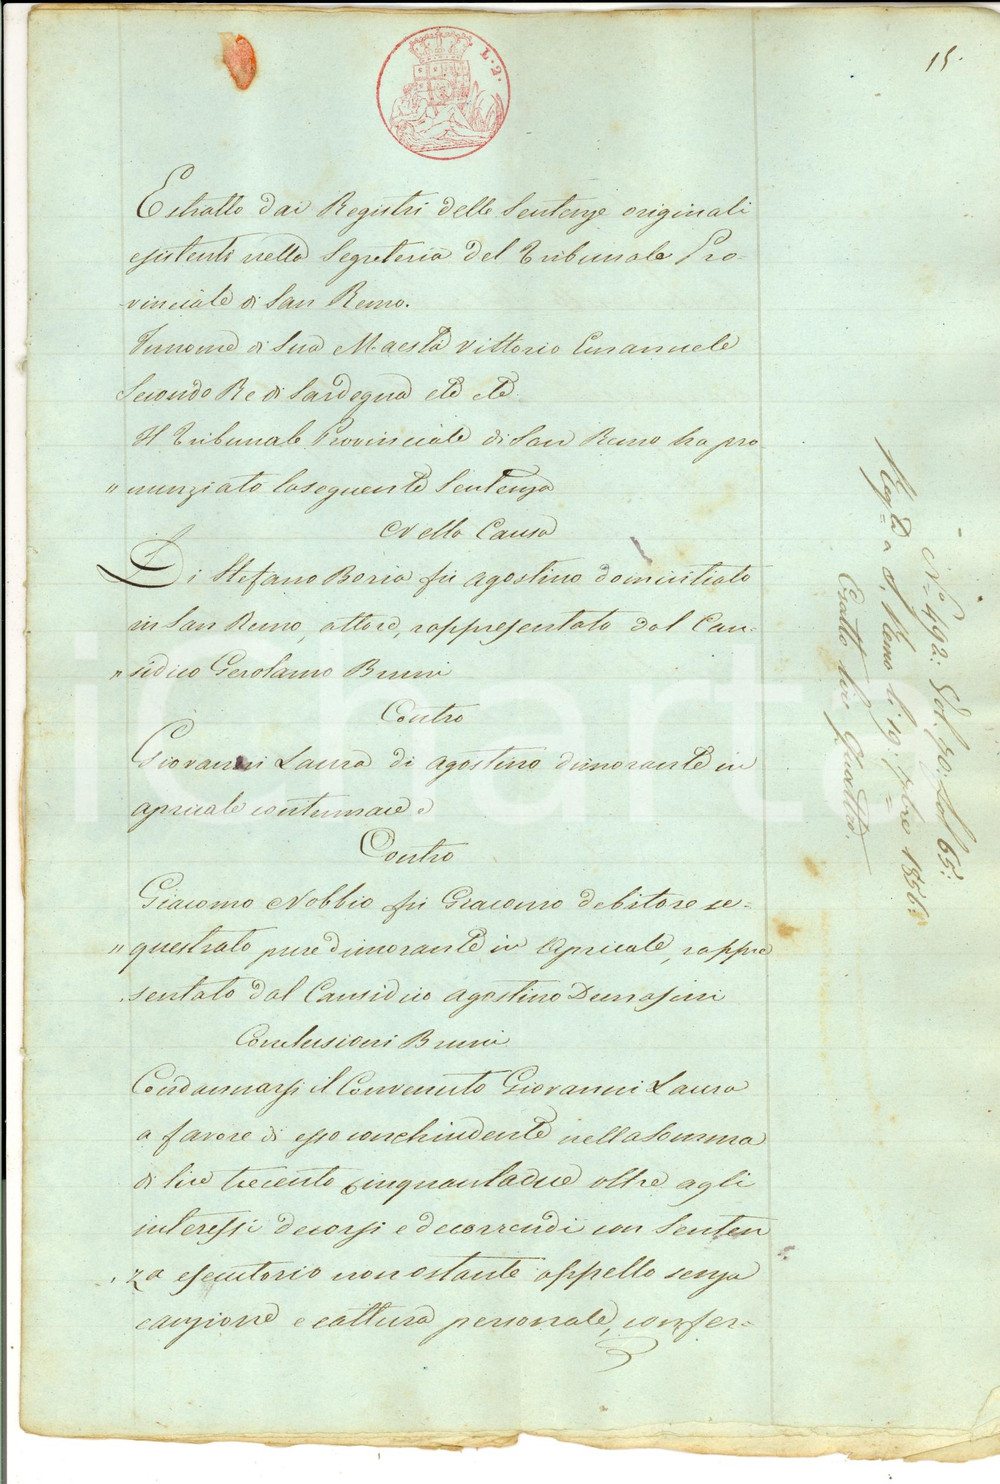 15.
L. 2.
Estratto dai Registri delle Sentenze originali
esistenti nella Segreteria del Tribunale Pro-
vinciale di San Remo.
In nome di Sua Maestà Vittorio Emanuele
Secondo Re di Sardegna etc etc
Il Tribunale Provinciale di San Remo ha pro
" nunziato la seguente Sentenza
Nella Causa
Di Stefano Boria fu Agostino domiciliato
in San Remo, attore, rappresentato dal Cau-
" sidico Gerolamo Bruni
Contro
Giovanni Laura di Agostino dimorante in
Apricale contumace e
Contro
Giacomo Nobbio fu Giacomo debitore se-
" questrato pure dimorante in Apricale, rappre
sentato dal Causidico Agostino
Conclusioni Bruni
Condannarsi il Convenuto Giovanni Laura
a favore di esso conchiudente nella somma
di lire trecento cinquantadue oltre agli
interessi decorsi e decorrendi con Senten
za esecutoria non ostante appello senza
cauzione e cattura personale, confer-
N.o 492: Vol. 50: fol 65:
Reg.ta a S. Remo li 19. 7bre 1856:
Esatto lire
iCharta